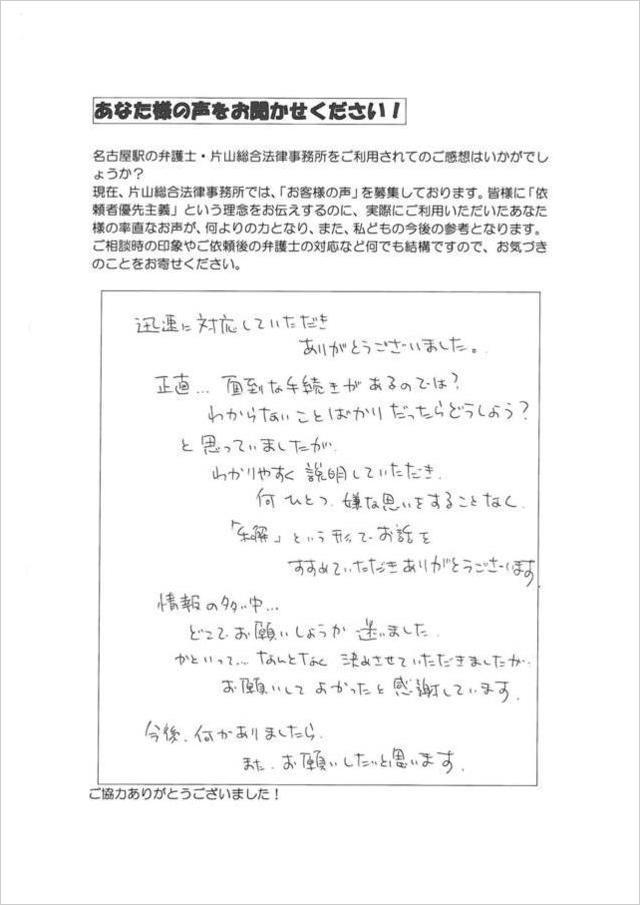 あなた様の声をお聞かせください！
名古屋駅の弁護士・片山総合法律事務所をご利用されてのご感想はいかがでし
ょうか？
現在、片山総合法律事務所では、「お客様の声」を募集しております。皆様に「依
頼者優先主義」という理念をお伝えするのに、実際にご利用いただいたあなた
様の率直なお声が、何よりの力となり、また、私どもの今後の参考となります。
ご相談時の印象やご依頼後の弁護士の対応など何でも結構ですので、お気づき
のことをお寄せください。
迅速に対応していただき
ありがとうございました。
正直… 面倒な手続きがあるのでは？
わからないことばかりだったらどうしよう？
と思っていましたが、
わかりやすく説明していただき、
何ひとつ、嫌な思いをすることなく、
「和解」という形でお話を
すすめていただきありがとうございます。
情報の多い中…
どこでお願いしようか迷いました。
かといって… なんとなく決めさせていただきましたが、
お願いしてよかったと感謝しています。
今後、何かありましたら、
また、お願いしたいと思います。
ご協力ありがとうございました！